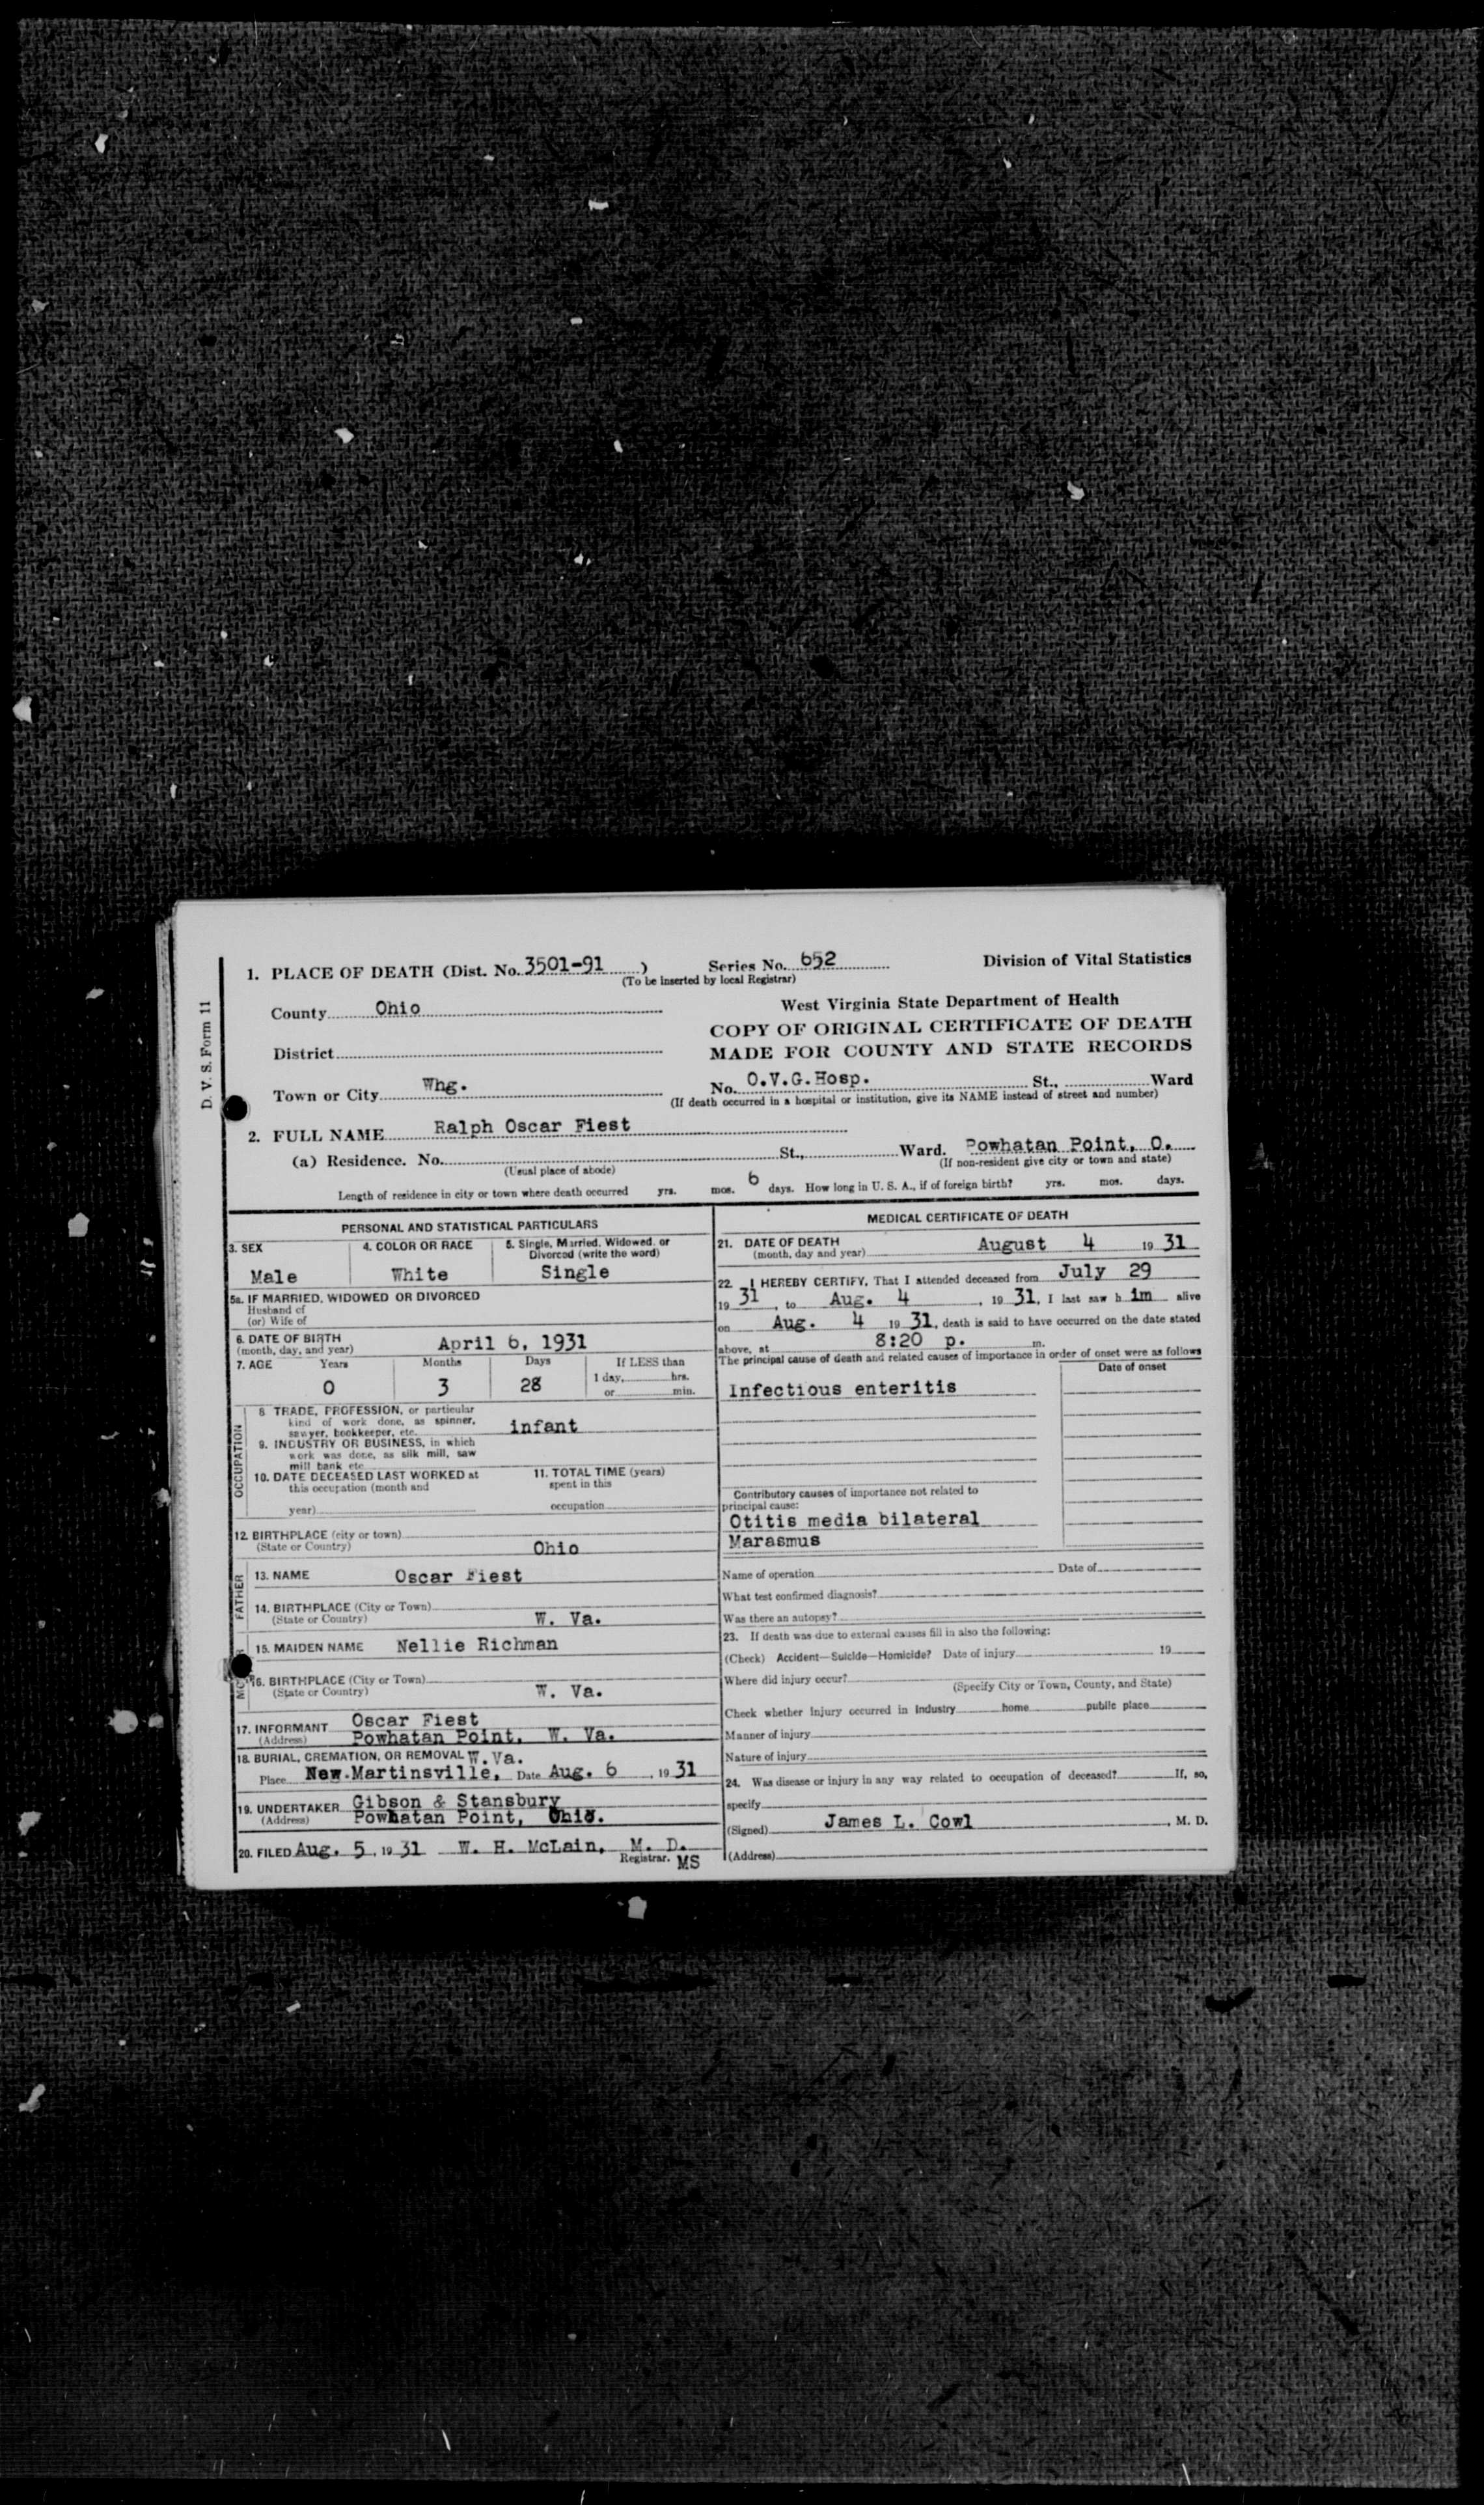 D. V. S. Form 11
1. PLACE OF DEATH (Dist. No. 3501-91 ) Series No. 652 Division of Vital Statistics
(To be inserted by local Registrar)
County Ohio West Virginia State Department of Health
COPY OF ORIGINAL CERTIFICATE OF DEATH
District MADE FOR COUNTY AND STATE RECORDS
Town or City Whg. No. O.V.G.Hosp. St., Ward
(If death occurred in a hospital or institution, give its NAME instead of street and number)
2. FULL NAME Ralph Oscar Fiest
(a) Residence. No. St., Ward. Powhatan Point, O.
(Usual place of abode) (If non-resident give city or town and state)
Length of residence in city or town where death occurred yrs. mos. 6 days. How long in U. S. A., if of foreign birth? yrs. mos. days.
PERSONAL AND STATISTICAL PARTICULARS
3. SEX 4. COLOR OR RACE 5. Single, Married, Widowed, or
Divorced (write the word)
Male White Single
5a. IF MARRIED, WIDOWED OR DIVORCED
Husband of
(or) Wife of
6. DATE OF BIRTH
(month, day, and year) April 6, 1931
7. AGE Years Months Days If LESS than
0 3 28 1 day, hrs.
or min.
OCCUPATION
8 TRADE, PROFESSION, or particular
kind of work done, as spinner,
sawyer, bookkeeper, etc. infant
9. INDUSTRY OR BUSINESS, in which
work was done, as silk mill, saw
mill bank etc
10. DATE DECEASED LAST WORKED at 11. TOTAL TIME (years)
this occupation (month and spent in this
year) occupation
12. BIRTHPLACE (city or town)
(State or Country) Ohio
FATHER
13. NAME Oscar Fiest
14. BIRTHPLACE (City or Town)
(State or Country) W. Va.
15. MAIDEN NAME Nellie Richman
16. BIRTHPLACE (City or Town)
(State or Country) W. Va.
17. INFORMANT Oscar Fiest
(Address) Powhatan Point, W. Va.
18. BURIAL, CREMATION, OR REMOVAL W.Va.
Place New Martinsville, Date Aug. 6, 1931
19. UNDERTAKER Gibson & Stansbury
(Address) Powhatan Point, Ohio.
20. FILED Aug. 5, 1931 W. H. McLain, M. D.
Registrar. MS
MEDICAL CERTIFICATE OF DEATH
21. DATE OF DEATH
(month, day and year) August 4 1931
22. I HEREBY CERTIFY, That I attended deceased from July 29
1931, to Aug. 4, 1931, I last saw him alive
on Aug. 4 1931, death is said to have occurred on the date stated
above, at 8:20 p. m.
The principal cause of death and related causes of importance in order of onset were as follows
Date of onset
Infectious enteritis
Contributory causes of importance not related to
principal cause:
Otitis media bilateral
Marasmus
Name of operation Date of
What test confirmed diagnosis?
Was there an autopsy?
23. If death was due to external causes fill in also the following:
(Check) Accident—Suicide—Homicide? Date of injury 19
Where did injury occur?
(Specify City or Town, County, and State)
Check whether injury occurred in Industry home public place
Manner of injury
Nature of injury
24. Was disease or injury in any way related to occupation of deceased? If, so,
specify
(Signed) James L. Cowl, M. D.
(Address)